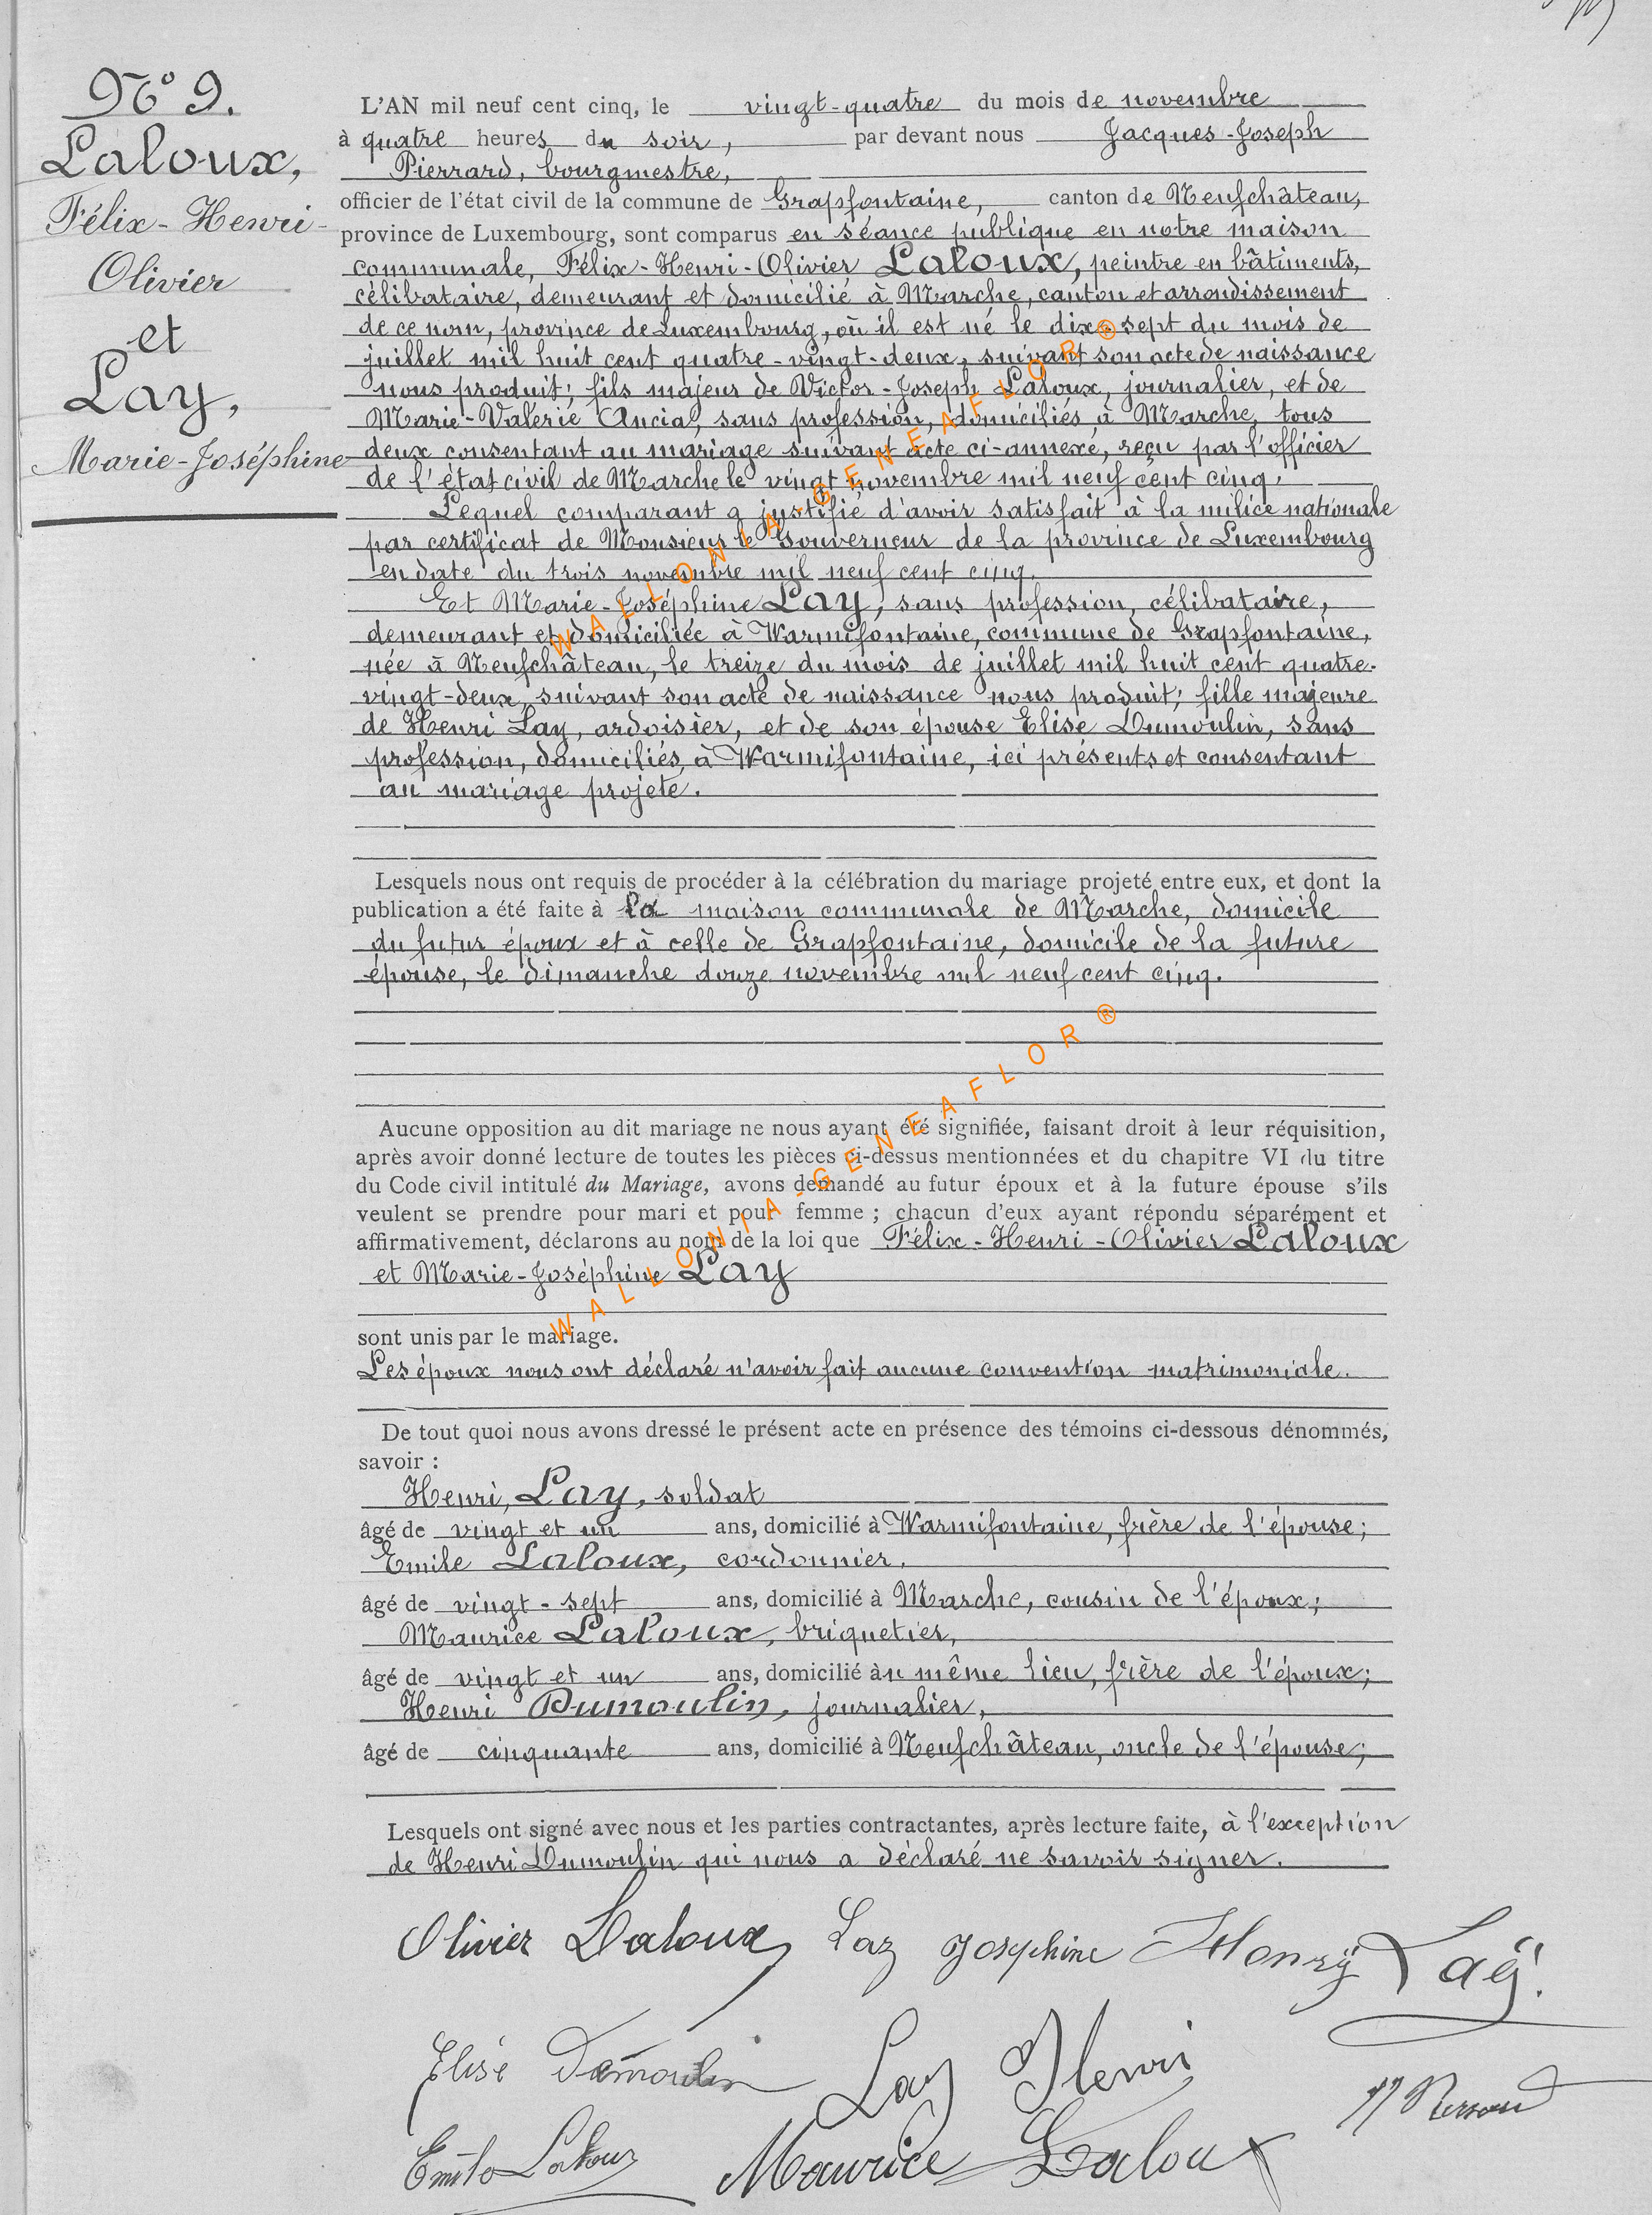 N° 9.
Laloux,
Félix-Henri-
Olivier
et
Lay,
Marie-Joséphine
L'AN mil neuf cent cinq, le vingt-quatre du mois de novembre
à quatre heures du soir, par devant nous Jacques-Joseph
Pierrard, bourgmestre,
officier de l'état civil de la commune de Grapfontaine, canton de Neufchâteau,
province de Luxembourg, sont comparus en séance publique en notre maison
communale, Félix-Henri-Olivier Laloux, peintre en bâtiments,
célibataire, demeurant et domicilié à Marche, canton et arrondissement
de ce nom, province de Luxembourg, où il est né le dix-sept du mois de
juillet mil huit cent quatre-vingt-deux, suivant son acte de naissance
nous produit; fils majeur de Victor-Joseph Laloux, journalier, et de
Marie-Valérie Ancia, sans profession, domiciliés à Marche, tous
deux consentant au mariage suivant acte ci-annexé, reçu par l'officier
de l'état civil de Marche le vingt novembre mil neuf cent cinq.
Lequel comparant a justifié d'avoir satisfait à la milice nationale
par certificat de Monsieur le Gouverneur de la province de Luxembourg
en date du trois novembre mil neuf cent cinq.
Et Marie-Joséphine Lay, sans profession, célibataire,
demeurant et domiciliée à Warmifontaine, commune de Grapfontaine,
née à Neufchâteau, le treize du mois de juillet mil huit cent quatre-
vingt-deux, suivant son acte de naissance nous produit; fille majeure
de Henri Lay, ardoisier, et de son épouse Elise Dumoulin, sans
profession, domiciliés à Warmifontaine, ici présents et consentant
au mariage projeté.
Lesquels nous ont requis de procéder à la célébration du mariage projeté entre eux, et dont la
publication a été faite à la maison communale de Marche, domicile
du futur époux et à celle de Grapfontaine, domicile de la future
épouse, le dimanche douze novembre mil neuf cent cinq.
Aucune opposition au dit mariage ne nous ayant été signifiée, faisant droit à leur réquisition,
après avoir donné lecture de toutes les pièces ci-dessus mentionnées et du chapitre VI du titre
du Code civil intitulé du Mariage, avons demandé au futur époux et à la future épouse s'ils
veulent se prendre pour mari et pour femme ; chacun d'eux ayant répondu séparément et
affirmativement, déclarons au nom de la loi que Félix-Henri-Olivier Laloux
et Marie-Joséphine Lay
sont unis par le mariage.
Les époux nous ont déclaré n'avoir fait aucune convention matrimoniale.
De tout quoi nous avons dressé le présent acte en présence des témoins ci-dessous dénommés,
savoir :
Henri, Lay, soldat
âgé de vingt et un ans, domicilié à Warmifontaine, frère de l'épouse;
Emile Laloux, cordonnier,
âgé de vingt-sept ans, domicilié à Marche, cousin de l'époux;
Maurice Laloux, briquetier,
âgé de vingt et un ans, domicilié au même lieu, frère de l'époux;
Henri Dumoulin, journalier,
âgé de cinquante ans, domicilié à Neufchâteau, oncle de l'épouse;
Lesquels ont signé avec nous et les parties contractantes, après lecture faite, à l'exception
de Henri Dumoulin qui nous a déclaré ne savoir signer.
Olivier Laloux Lay Joséphine Henry Laÿ.
Elise Dumoulin Lay Henri
Emile Laloux Maurice Laloux
WALLONIA-GENEAFLOR®
WALLONIA-GENEAFLOR®